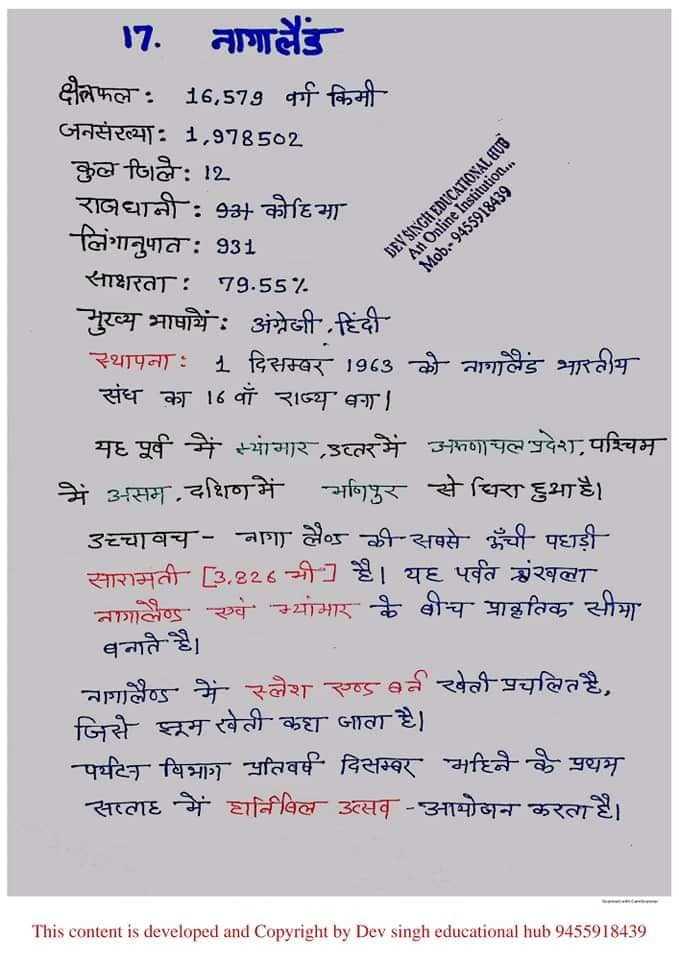 17. नागालैंड
क्षेत्रफल : 16,579 वर्ग किमी
जनसंख्या : 1,978502
कुल जिले : 12
राजधानी : कोहिमा
लिंगानुपात : 931
साक्षरता : 79.55%
मुख्य भाषायें : अंग्रेजी, हिंदी
DEV SINGH EDUCATIONAL HUB
An Online Institution...
Mob.- 9455918439
स्थापना : 1 दिसम्बर 1963 को नागालैंड भारतीय
संघ का 16 वाँ राज्य बना।
यह पूर्व में म्यांमार, उत्तर में अरुणाचल प्रदेश, पश्चिम
में असम, दक्षिण में मणिपुर से घिरा हुआ है।
उच्चावच - नागा लैण्ड की सबसे ऊँची पहाड़ी
सारामती [3,826 मी] है। यह पर्वत श्रंखला
नागालैण्ड एवं म्यांमार के बीच प्राकृतिक सीमा
बनाते है।
नागालैण्ड में स्लेश एण्ड बर्न खेती प्रचलित है,
जिसे झूम खेती कहा जाता है।
पर्यटन विभाग प्रतिवर्ष दिसम्बर महिने के प्रथम
सप्ताह में हार्नबिल उत्सव - आयोजन करता है।
Scanned with CamScanner
This content is developed and Copyright by Dev singh educational hub 9455918439